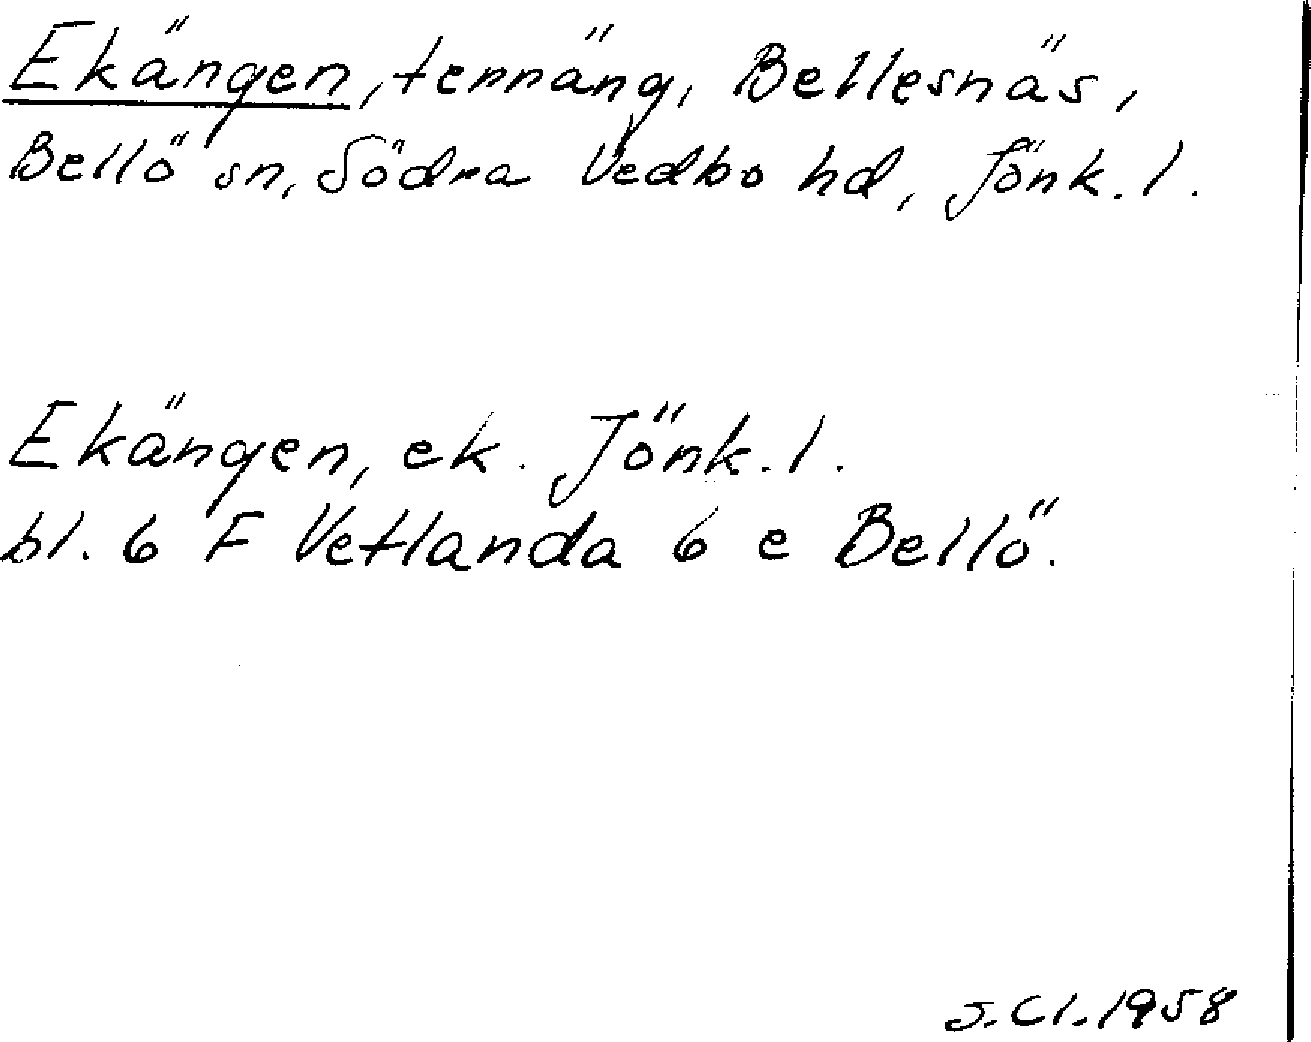 Ekängen, ternäng, Bellesnäs,
Bellö sn, Södra Vedbo hd, Jönk. l.
Ekängen, ek. Jönk. l.
bl. 6 F Vetlanda 6 e Bellö.
J. Cl. 1958